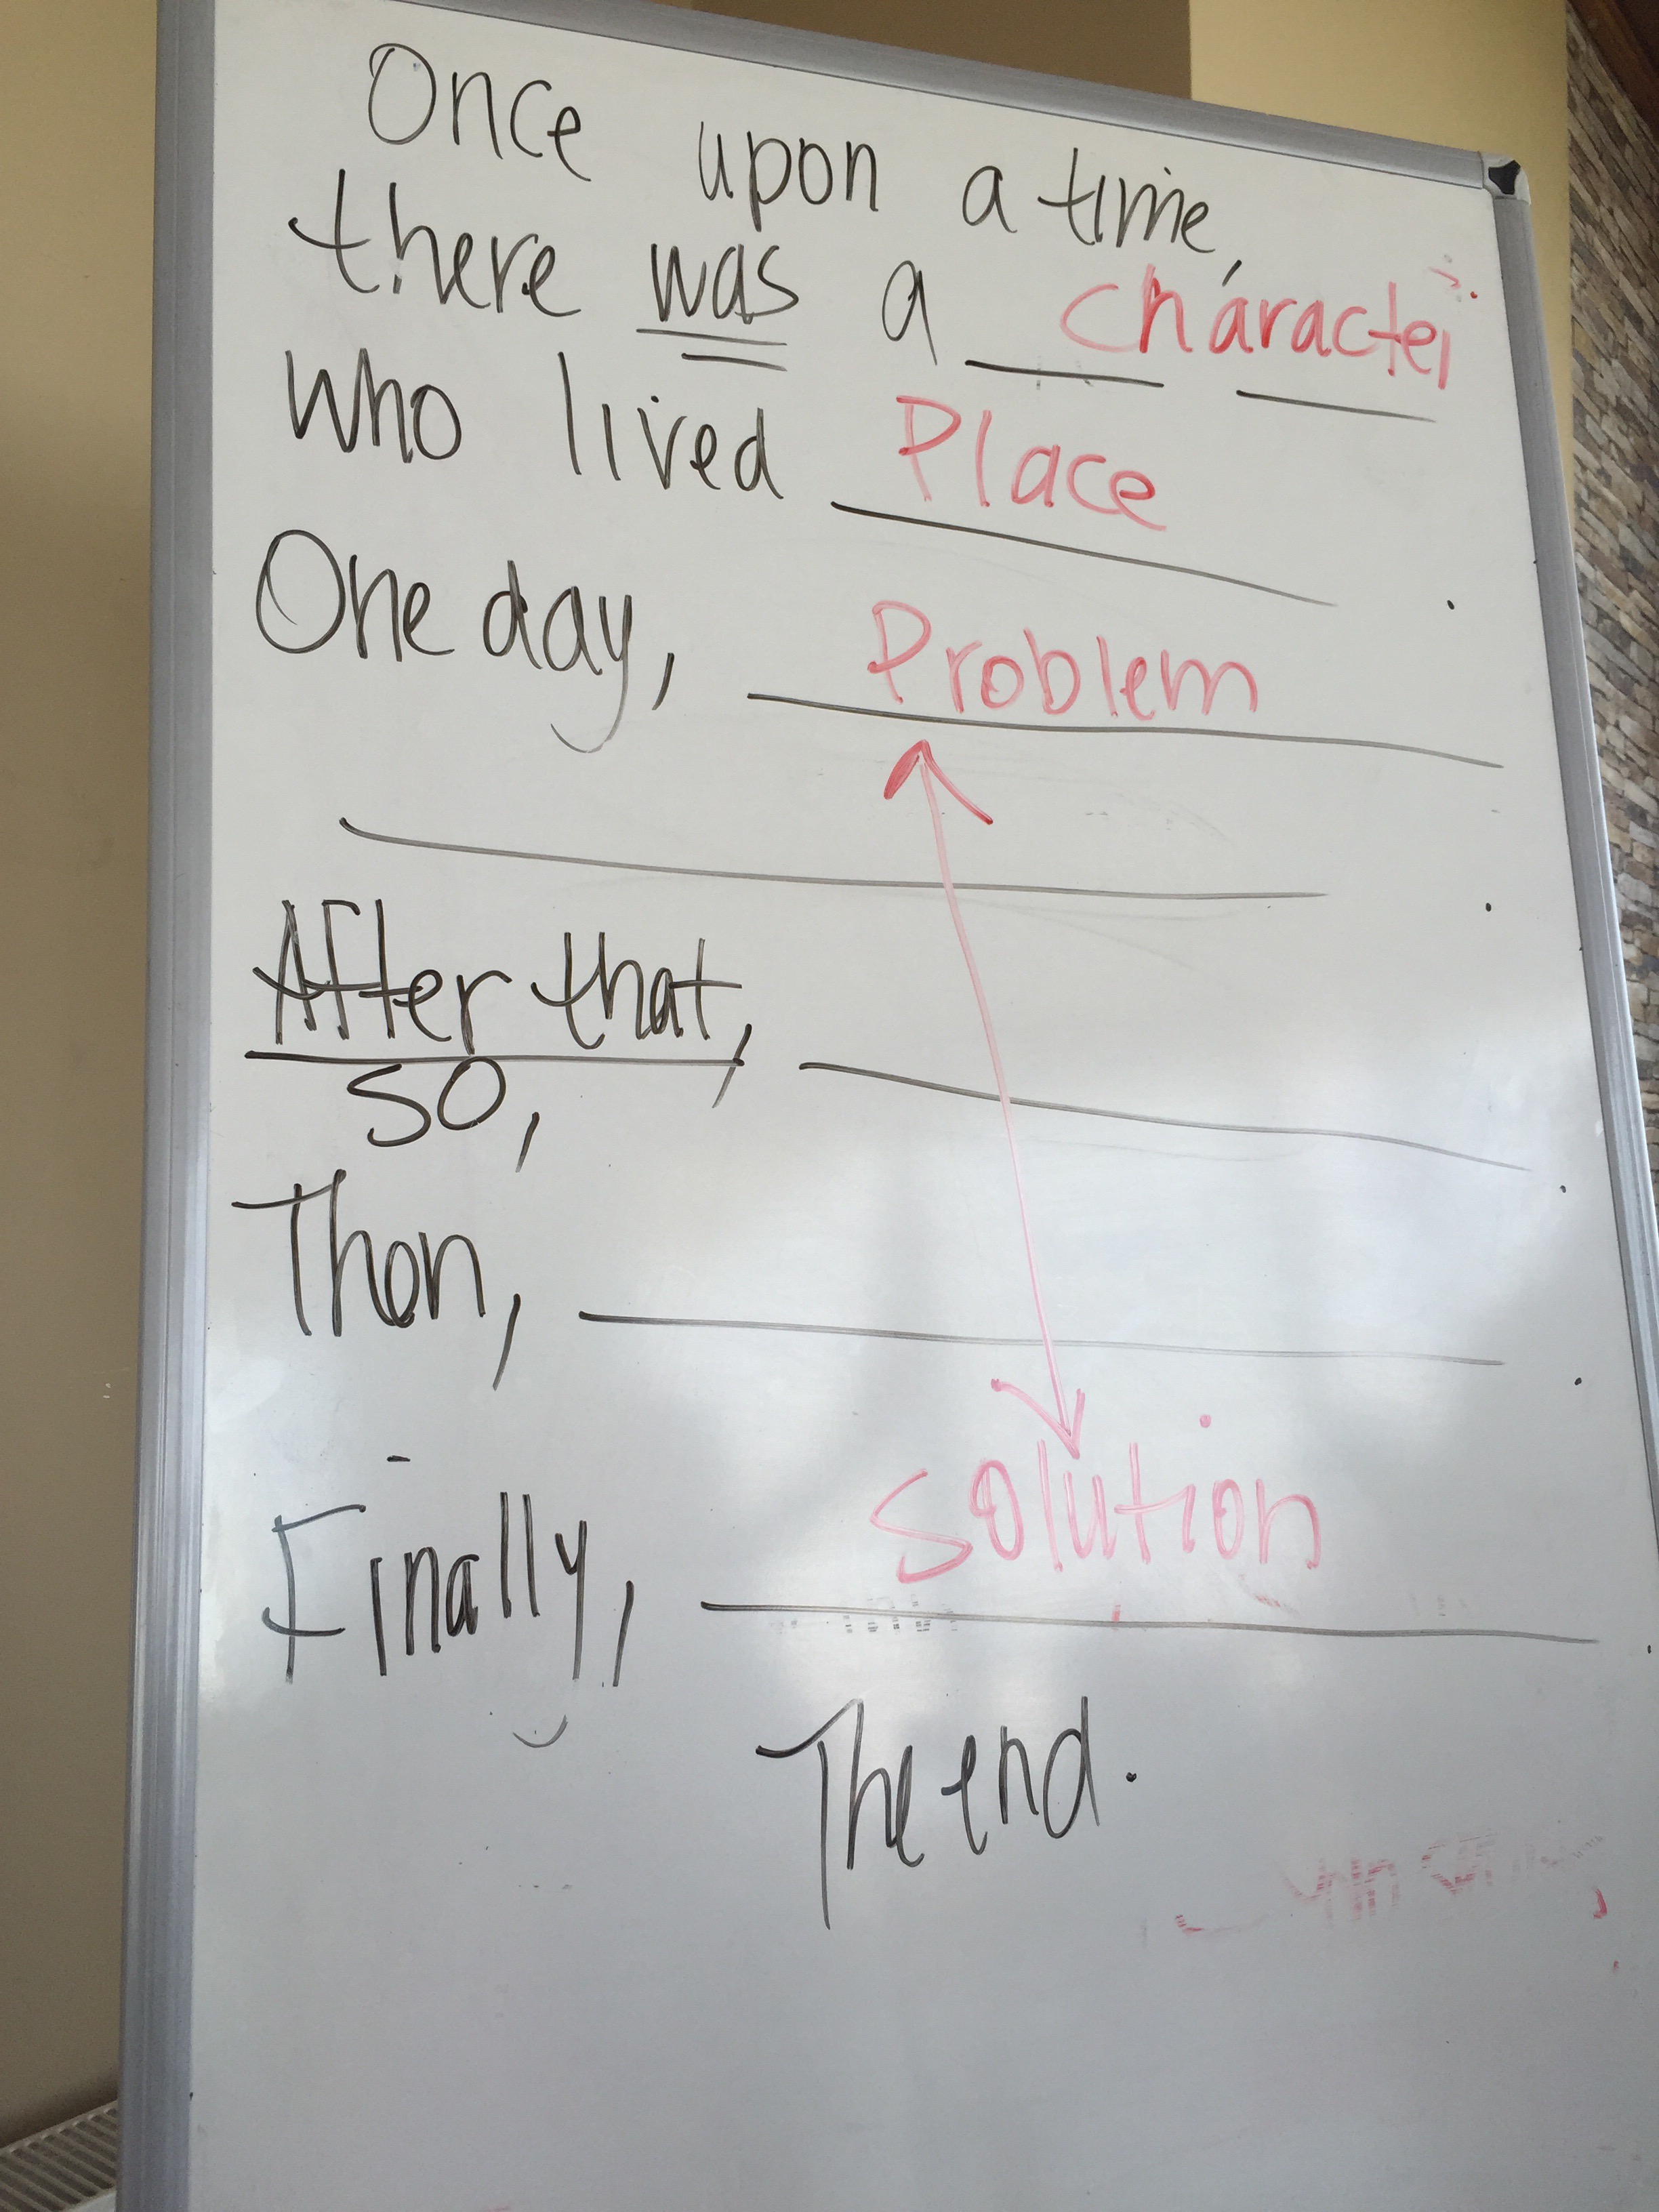 Once upon a time,
there was a character
who lived Place
One day, Problem
After that,
so,
Then,
Finally, Solution
The end.